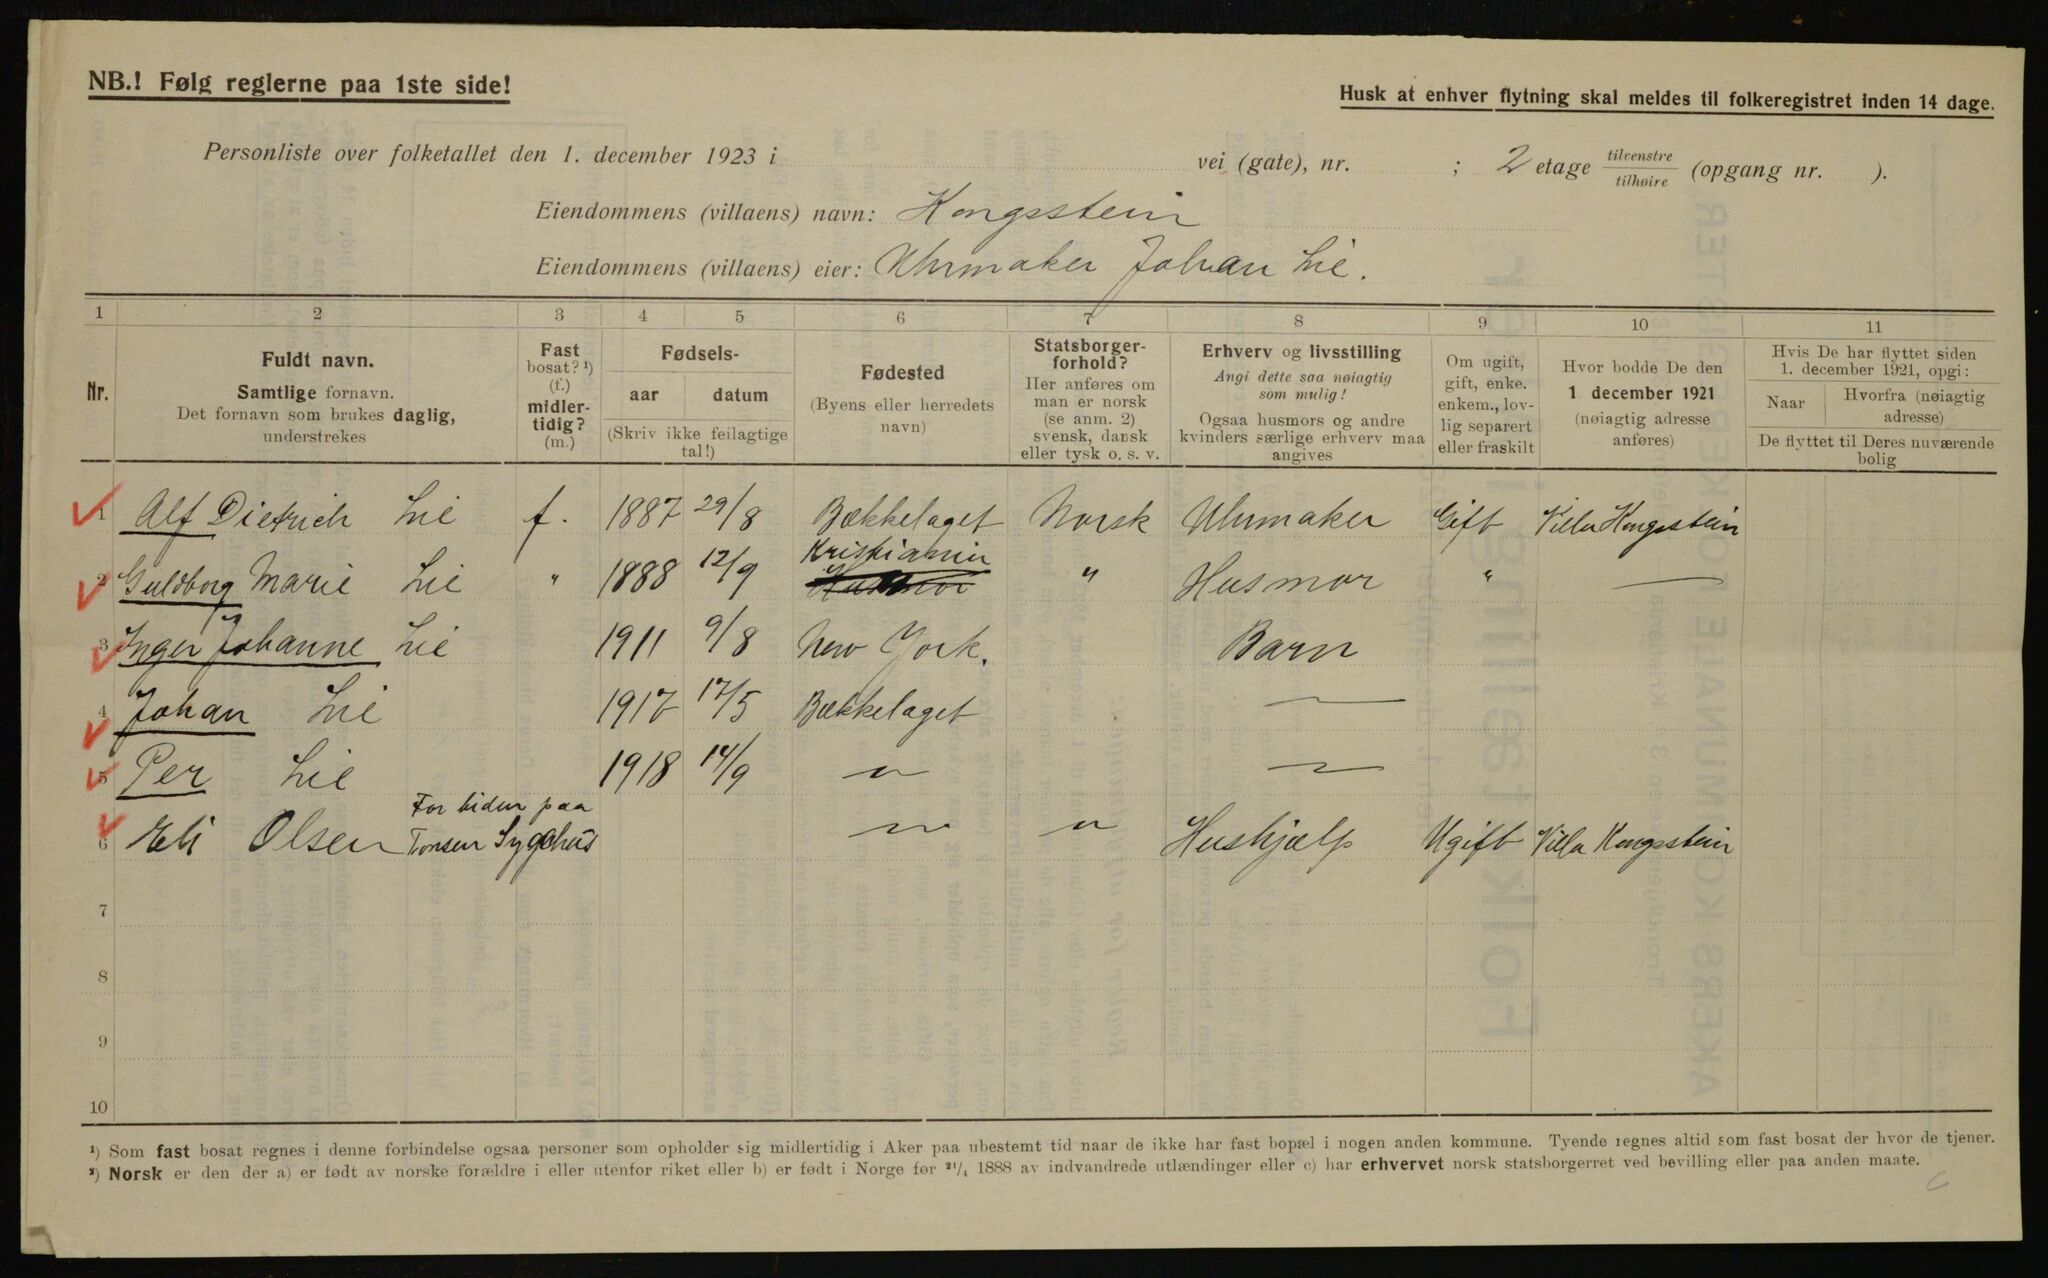 NB.! Følg reglerne paa 1ste side!
Husk at enhver flytning skal meldes til folkeregistret inden 14 dage.
Personliste over folketallet den 1. december 1923 i vei (gate), nr. ; 2 etage tilvenstre/tilhøire (opgang nr. ).
Eiendommens (villaens) navn: Kongsstein
Eiendommens (villaens) eier: Uhrmaker Johan Lie.
1 2 3 4 5 6 7 8 9 10 11
Nr.
Fuldt navn.
Samtlige fornavn.
Det fornavn som brukes daglig,
understrekes
Fast
bosat? ¹)
(f.)
midler-
tidig?
(m.)
Fødsels-
aar datum
(Skriv ikke feilagtige
tal!)
Fødested
(Byens eller herredets
navn)
Statsborger-
forhold?
Her anføres om
man er norsk
(se anm. 2)
svensk, dansk
eller tysk o. s. v.
Erhverv og livsstilling
Angi dette saa nøiagtig
som mulig!
Ogsaa husmors og andre
kvinders særlige erhverv maa
angives
Om ugift,
gift, enke.
enkem., lov-
lig separert
eller fraskilt
Hvor bodde De den
1 december 1921
(nøiagtig adresse
anføres)
Hvis De har flyttet siden
1. december 1921, opgi:
Naar Hvorfra (nøiagtig
adresse)
De flyttet til Deres nuværende
bolig
1 Alf Dietrich Lie f. 1887 29/8 Bækkelaget Norsk Uhrmaker Gift Villa Kongsstein
2 Guldborg Marie Lie " 1888 12/9 Kristiania Husmor " Husmor " —
3 Inger Johanne Lie 1911 9/8 New York. Barn
4 Johan Lie 1917 17/5 Bækkelaget —
5 Per Lie 1918 14/9 " —
For tiden paa
6 Eli Olsen Tonsen Sygehus " " Hushjælp Ugift Villa Kongsstein
7
8
9
10
¹) Som fast bosat regnes i denne forbindelse ogsaa personer som opholder sig midlertidig i Aker paa ubestemt tid naar de ikke har fast bopæl i nogen anden kommune. Tyende regnes altid som fast bosat der hvor de tjener.
²) Norsk er den der a) er født av norske forældre i eller utenfor riket eller b) er født i Norge før 21/4 1888 av indvandrede utlændinger eller c) har erhvervet norsk statsborgerret ved bevilling eller paa anden maate.